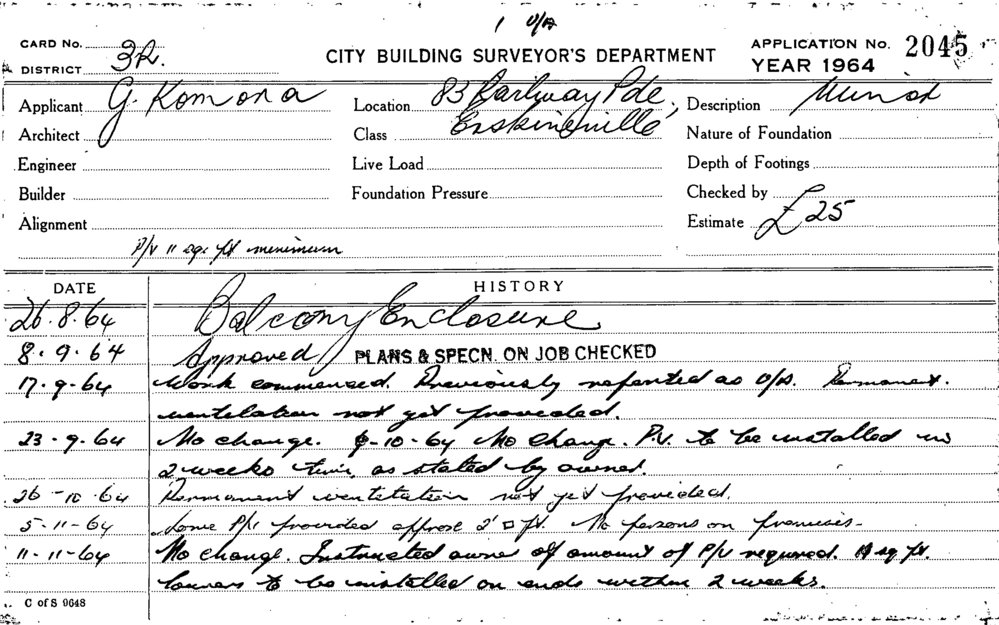 1 O/A
CARD No. 3R. CITY BUILDING SURVEYOR'S DEPARTMENT APPLICATION No. 2045
DISTRICT YEAR 1964
Applicant G. Komora Location 83 Railway Pde, Description Minor
Architect Class Erskineville Nature of Foundation
Engineer Live Load Depth of Footings
Builder Foundation Pressure Checked by
Alignment Estimate £25
P/V 11 sq. ft minimum
DATE HISTORY
26.8.64 Balcony Enclosure
8.9.64 Approved PLANS & SPECN. ON JOB CHECKED
17.9.64 Work commenced. Previously reported as O/A. Permanent
ventilation not yet provided.
23.9.64 No change. 6-10-64 No Change. P.V. to be installed in
2 weeks time, as stated by owner.
26-10-64 Permanent ventilation not yet provided.
5-11-64 Some P/V provided approx 2' □ ft. No persons on premises.
11-11-64 No change. Instructed owner of amount of P/V required. 11 sq ft.
Louvres to be installed on ends within 2 weeks.
C of S 9648